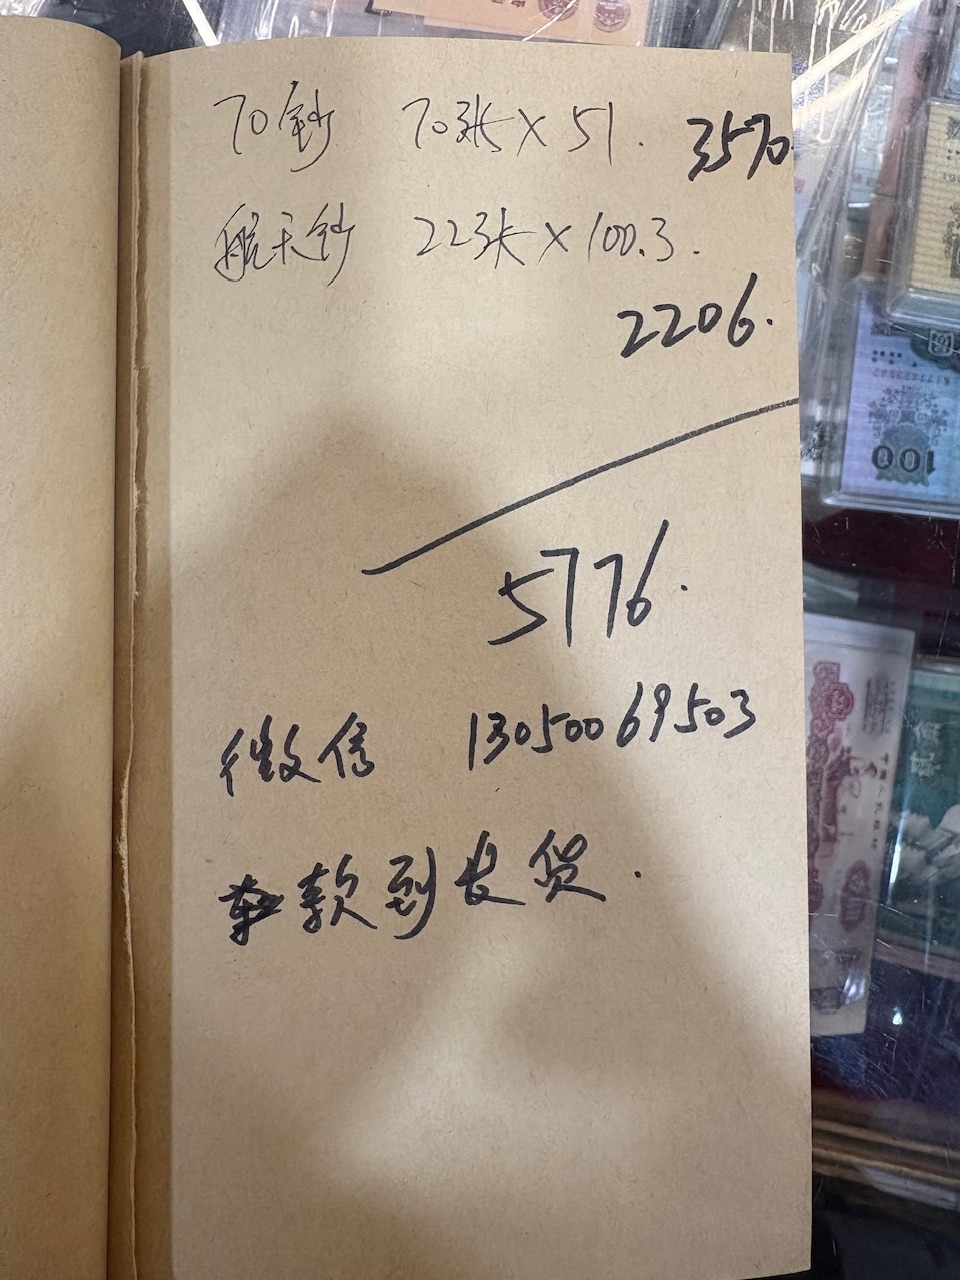 70钞 70张×51. 3570
航天钞 22张×100.3.
2206.
5776.
微信 13050069503
款到发货.
100